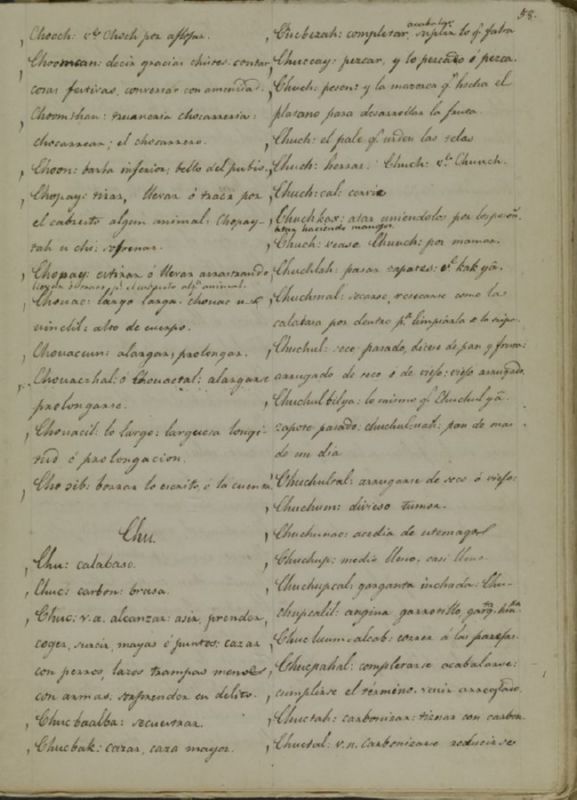 58.
Chooch: v.e Choch por aflojar.
Choomean: decir gracias chistes, contar
cosas festivas, conversar con amenidad.
Choomthan: truaneria chocarreria:
chocarrear; el chocarrero.
Choon: barba inferior; bello del pubis.
Chopay: tirar, llevar ó traer por
el cabestro algun animal: Chopay-
tah u chi: sofrenar.
Chopay: estirar ó llevar arrastrando
Chouac: largo larga. chouac u
uinclil: alto de cuerpo.
Chouaccun: alargar, prolongar.
Chouachal: ó Chouactal: alargarse
prolongarse.
Chouacil: lo largo: larguesa longi-
tud ó prolongacion.
Cho oib: borrar lo escrito, ó la cuenta.
Chu.
Chu: calabaso.
Chuc: carbon: brasa.
Chuc: v.a. alcanzar: asir, prender,
coger, surcir, mayas ó puntos: cazar
con perros, lazos trampas menos
con armas. sorprender en delito.
Chucbaalba: secuestrar.
Chucbak: cazar, caza mayor.
acabalar
Chucbezah: completar, suplir lo q.e falta
Chuccay: pezcar, y lo pezcado ó pezca.
Chuch: pezon: y la mazorca q.e hecha el
platano para desarrollar la fruta.
Chuch: el palo q.e urden las telas
Chuch: herrar. Chuch: v.e Chuuch.
Chuch: cal: corvir
Chuchkax: atar uniendolos por los
atar haciendo manojos.
Chuch: vease Chuuch: por mamar.
Chuchlah: pasar zapotes: v.e kak ya.
Chuchmal: secarse, resecarse como la
calabaza por dentro p.a limpiarla
Chuchul: seco pasado, dicese de pan y frutas:
arrugado de seco ó de viejo: viejo arrugado.
Chuchulbilya: lo mismo q.e Chuchul ya.
zapote pasado: chuchul uah: pan de mas
de un dia
Chuchultal: arrugarse de seco ó viejo:
Chuchum: divieso tumor.
Chuchunac: acedia de estomago
Chuchup: medio lleno, casi lleno
Chuchupcal: garganta inchada: Chu-
chupcalil: angina garrotillo,
Chucluum alcab: correr á las parejas.
Chucpahal: completarse acabalarse:
cumplirse el término, vivir arreglado.
Chuctah: carbonizar: tiznar con carbon.
Chuctal: v.n. carbonizarse reducirse